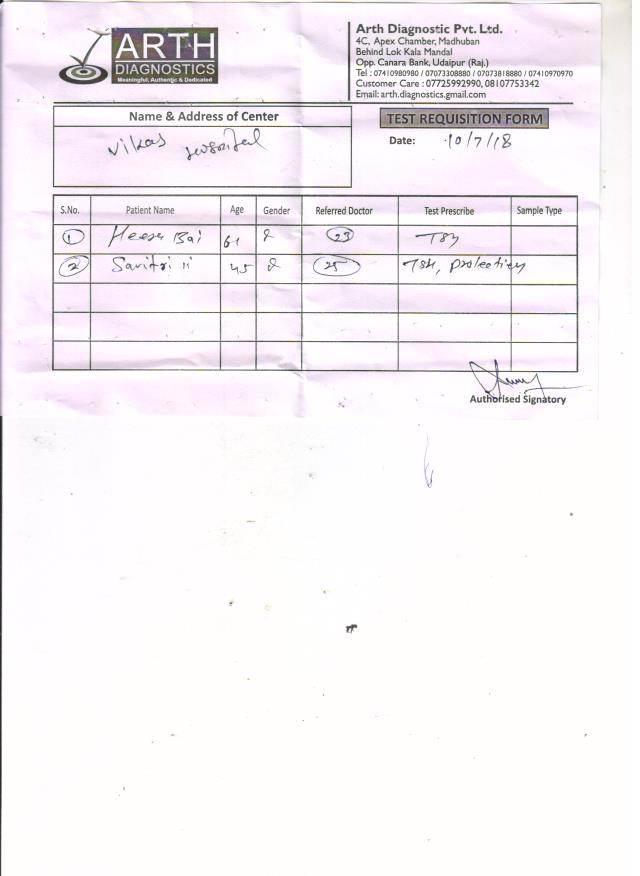 ARTH
DIAGNOSTICS
Meaningful, Authentic & Dedicated
Arth Diagnostic Pvt. Ltd.
4C, Apex Chamber, Madhuban
Behind Lok Kala Mandal
Opp. Canara Bank, Udaipur (Raj.)
Tel : 07410980980 / 07073308880 / 07073818880 / 07410970970
Customer Care : 07725992990, 08107753342
Email: arth.diagnostics.gmail.com
Name & Address of Center
Vikas
TEST REQUISITION FORM
Date: 10/7/18
S.No. Patient Name Age Gender Referred Doctor Test Prescribe Sample Type
1 Heera Bai 61 23
2 Savitri 11 45 25 TSH,
Authorised Signatory